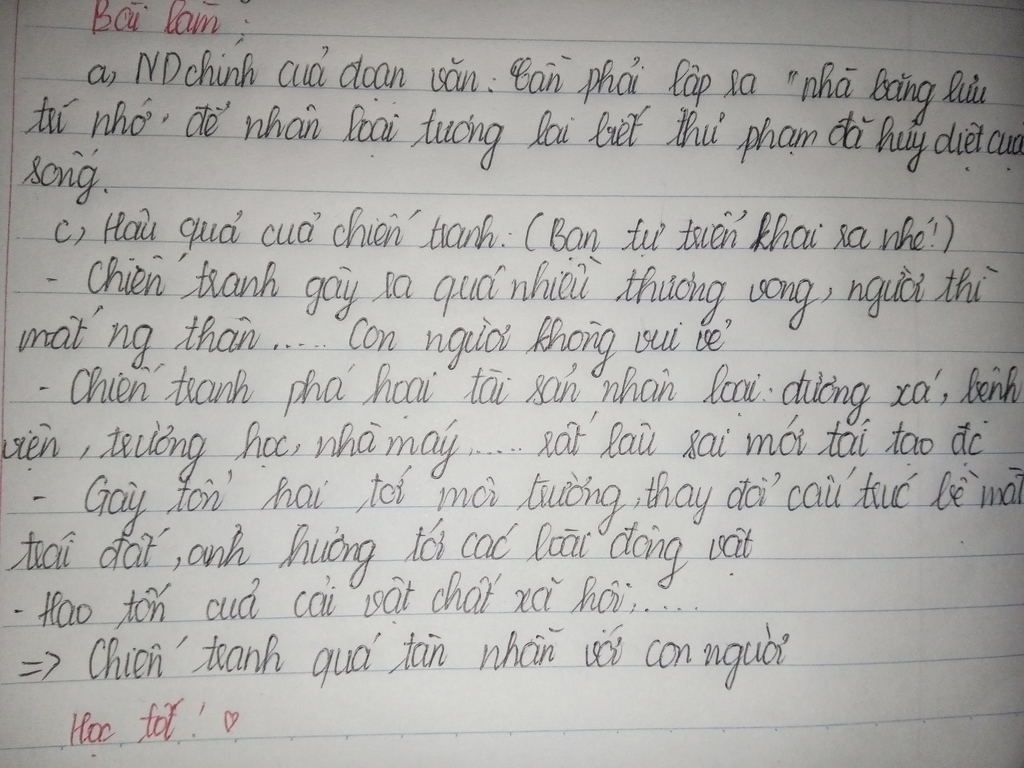 Bài làm:
a, ND chính của đoạn văn: Cần phải lập ra "nhà băng lưu
trí nhớ" để nhân loại tương lai biết thủ phạm đã hủy diệt cuộc
sống.
c, Hậu quả của chiến tranh: (Bạn tự triển khai ra nhé!)
- Chiến tranh gây ra quá nhiều thương vong, người thì
mất ng thân..... Con người không vui vẻ
- Chiến tranh phá hoại tài sản nhân loại: đường xá, bệnh
viện, trường học, nhà máy,..... rất lâu sai mới tái tạo đc
- Gây tổn hại tới môi trường, thay đổi cấu trúc bề mặt
trái đất, ảnh hưởng tới các loài động vật
- Hao tốn của cải vật chất xã hội,....
=> Chiến tranh quá tàn nhẫn với con người
Học tốt! ♡